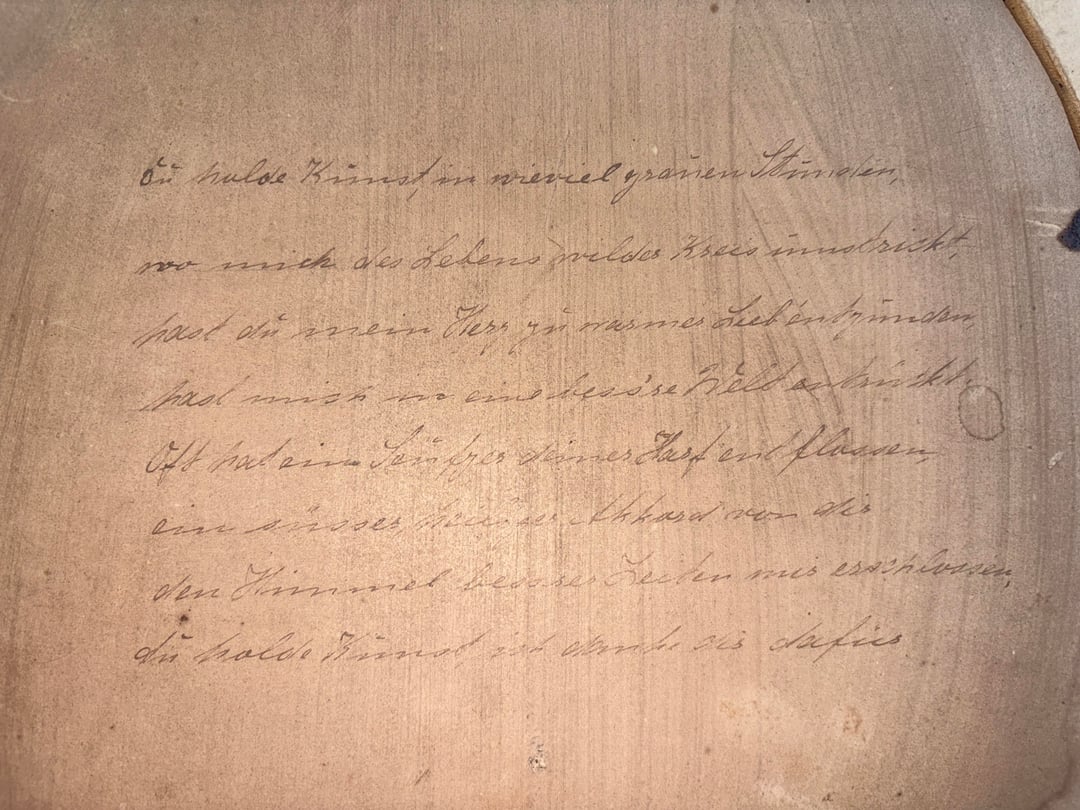 du holde Kunst, in wieviel grauen Stunden,
wo mich des Lebens wilder Kreis umstrickt,
hast du mein Herz zu warmer Lieb entzunden,
hast mich in eine bess're Welt entrückt.
Oft hat ein Seufzer deiner Harf entflossen,
ein süsser, heil'ger Akkord von dir
den Himmel bessrer Zeiten mir erschlossen,
du holde Kunst, ich danke dir dafür